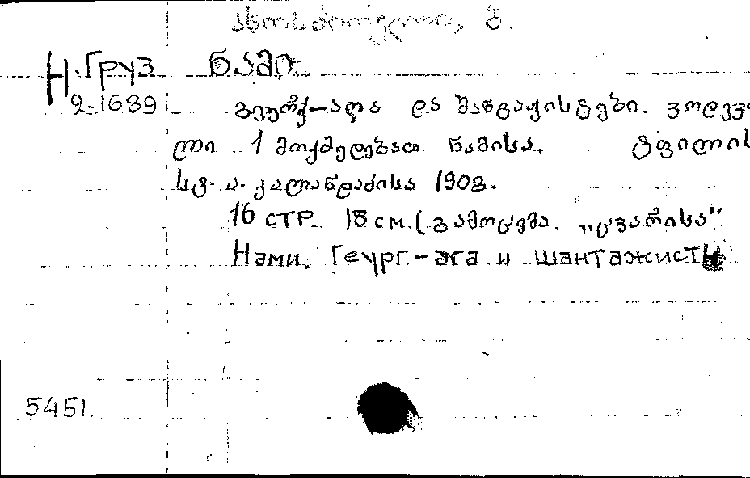 Н.Груз ნამი
2-1639 გეურქ-აღა და შანტაჟისტები. ვოდევ
ლი 1 მოქმედებათ ნამისა. ტფილის
სტ. ა. კალანდაძისა 1908.
16 стр. 18 см. (გამოცემა „ცვარისა“
Нами. Геург-ага и шантажисты
5451.